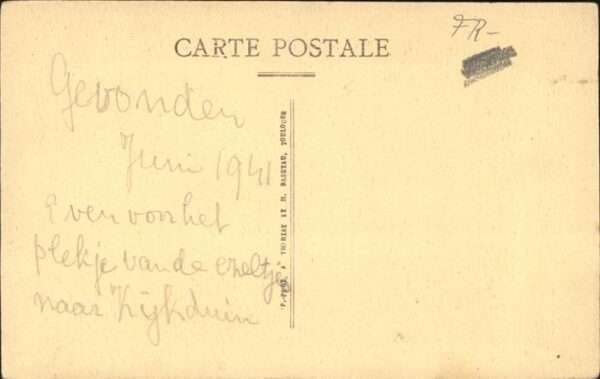 CARTE POSTALE
FR-
Gevonden
Juni 1941
even voor het
plekje van de ezeltjes
naar Kijkduin
THOMAS ET H. BASUYAU, TOULOUSE